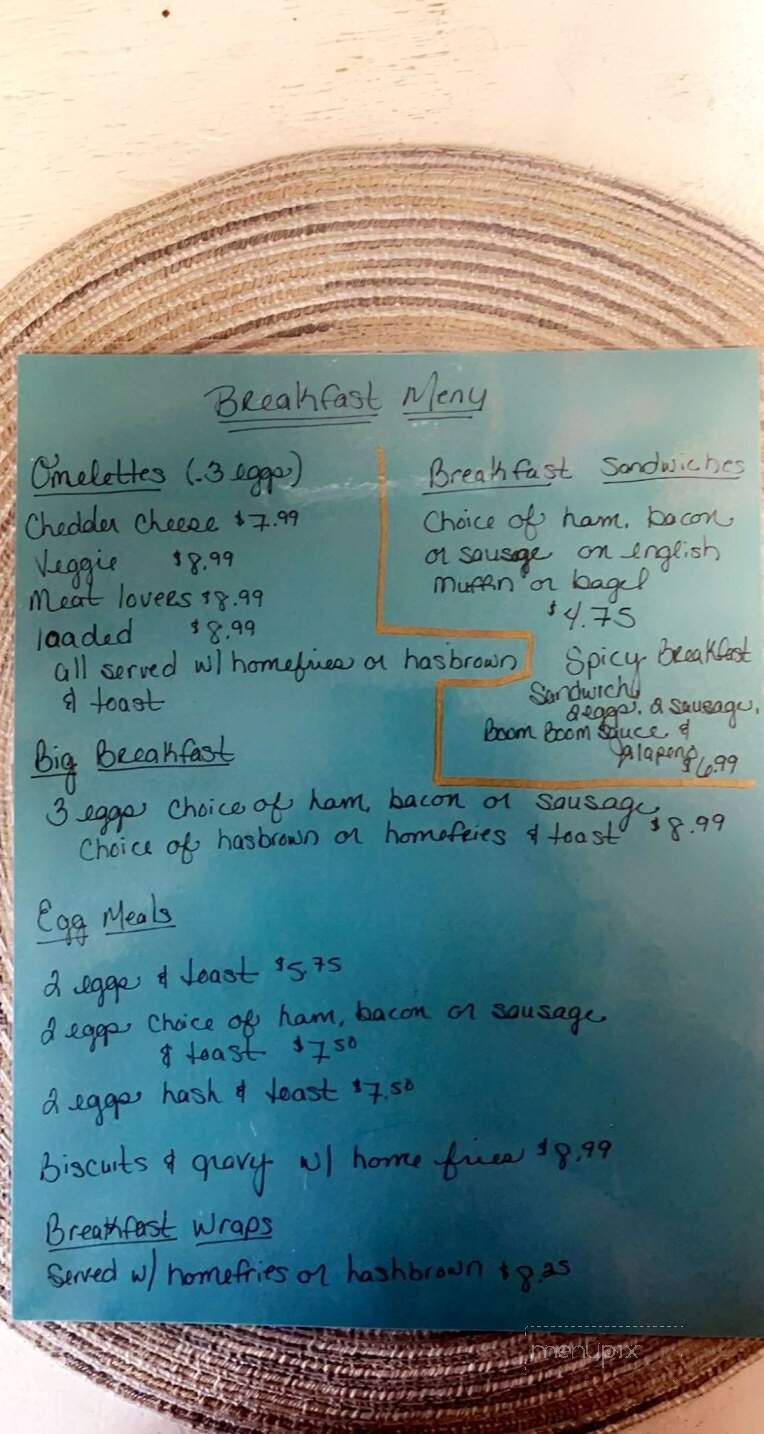 Breakfast Menu
Omelettes (.3 eggs)
Chedder Cheese $7.99
Veggie $8.99
Meat lovers $8.99
loaded $8.99
all served w/ homefries or hasbrown
& toast
Breakfast Sandwiches
Choice of ham, bacon
or sausage on english
muffin or bagel
$4.75
Spicy Breakfast
Sandwich
2 eggs, 2 sausage,
Boom Boom Sauce &
jalapeno
$6.99
Big Breakfast
3 eggs choice of ham, bacon or sausage
Choice of hasbrown or homefries & toast $8.99
Egg Meals
2 eggs & toast $5.75
2 eggs choice of ham, bacon or sausage
& toast $7.50
2 eggs hash & toast $7.50
Biscuits & gravy w/ home fries $8.99
Breakfast Wraps
Served w/ homefries or hashbrown $8.25
menupix